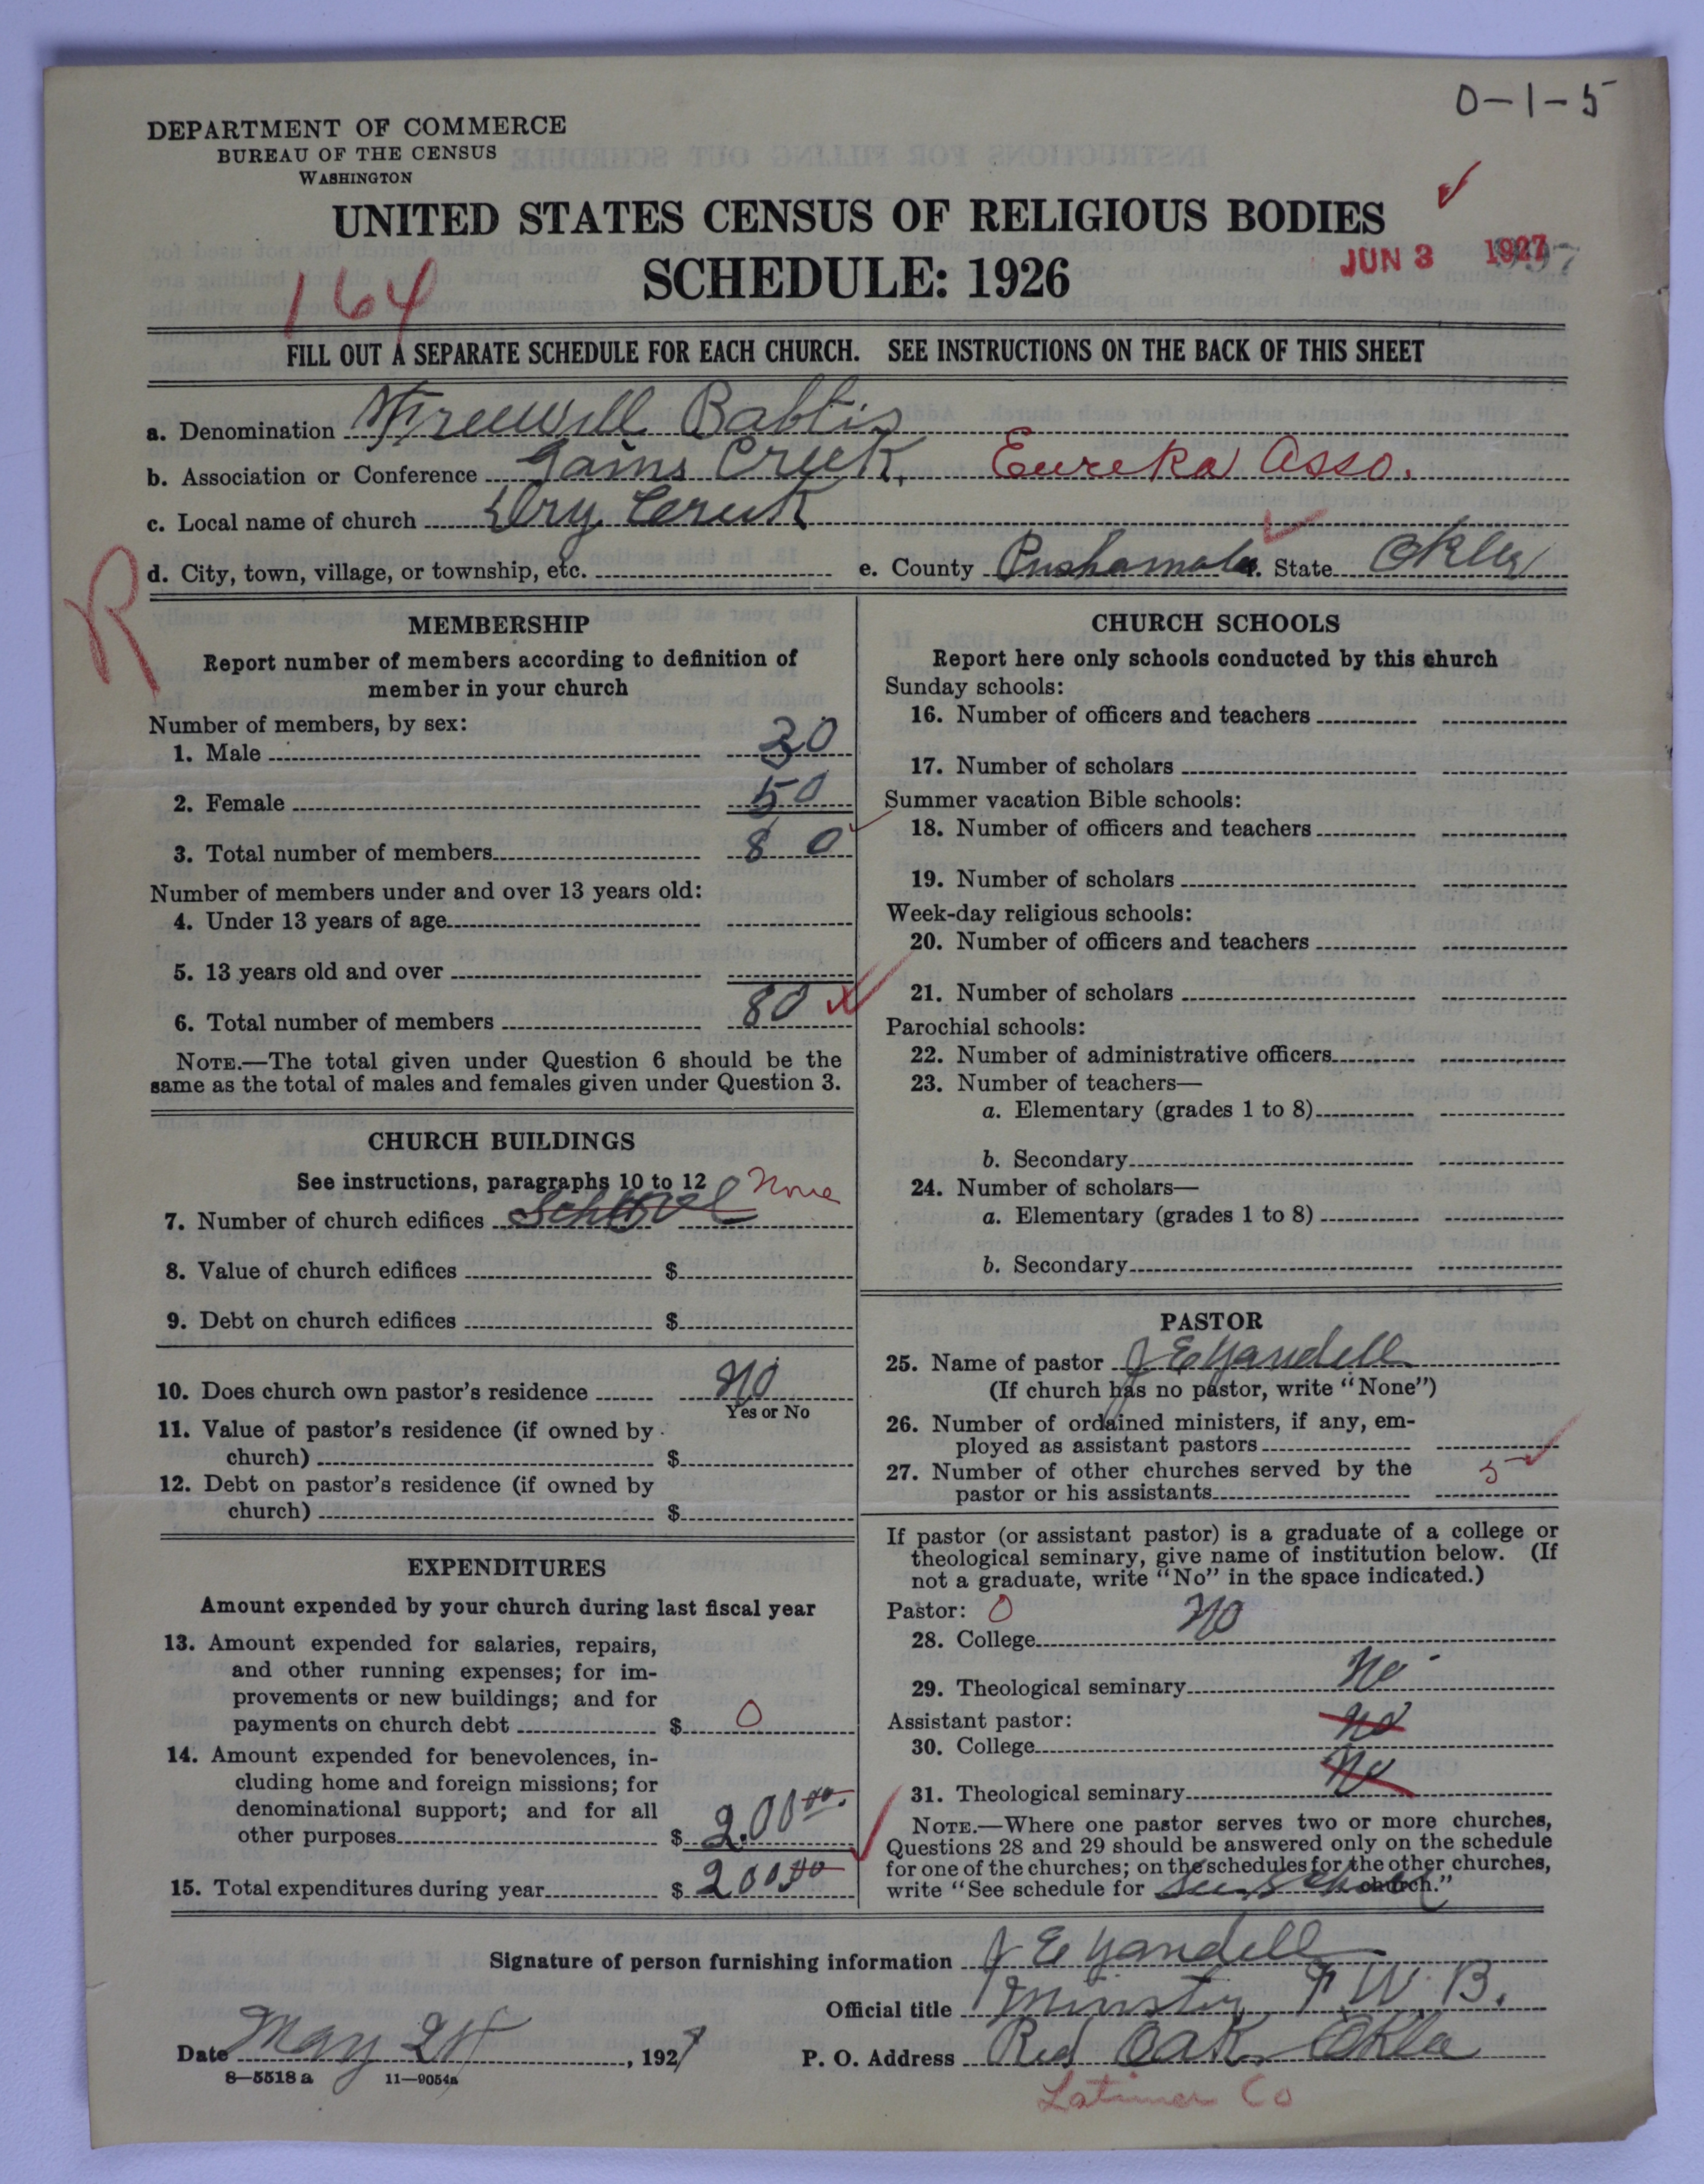 O-1-5
DEPARTMENT OF COMMERCE
BUREAU OF THE CENSUS
WASHINGTON
UNITED STATES CENSUS OF RELIGIOUS BODIES
SCHEDULE: 1926
JUN 3 1927
164
FILL OUT A SEPARATE SCHEDULE FOR EACH CHURCH. SEE INSTRUCTIONS ON THE BACK OF THIS SHEET
a. Denomination Freewill Babtis
b. Association or Conference Gains Creek, Eureka Asso.
c. Local name of church Dry Creek
d. City, town, village, or township, etc. e. County Pushamata. State Okla
R
MEMBERSHIP
Report number of members according to definition of
member in your church
Number of members, by sex:
1. Male 30
2. Female 50
3. Total number of members 80
Number of members under and over 13 years old:
4. Under 13 years of age
5. 13 years old and over
6. Total number of members 80
NOTE.—The total given under Question 6 should be the
same as the total of males and females given under Question 3.
CHURCH BUILDINGS
See instructions, paragraphs 10 to 12
7. Number of church edifices None
8. Value of church edifices $
9. Debt on church edifices $
10. Does church own pastor's residence No
Yes or No
11. Value of pastor's residence (if owned by
church) $
12. Debt on pastor's residence (if owned by
church) $
EXPENDITURES
Amount expended by your church during last fiscal year
13. Amount expended for salaries, repairs,
and other running expenses; for im-
provements or new buildings; and for
payments on church debt $ 0
14. Amount expended for benevolences, in-
cluding home and foreign missions; for
denominational support; and for all
other purposes $ 2.00 00
15. Total expenditures during year $ 200 00
CHURCH SCHOOLS
Report here only schools conducted by this church
Sunday schools:
16. Number of officers and teachers
17. Number of scholars
Summer vacation Bible schools:
18. Number of officers and teachers
19. Number of scholars
Week-day religious schools:
20. Number of officers and teachers
21. Number of scholars
Parochial schools:
22. Number of administrative officers
23. Number of teachers—
a. Elementary (grades 1 to 8)
b. Secondary
24. Number of scholars—
a. Elementary (grades 1 to 8)
b. Secondary
PASTOR
25. Name of pastor J E Yandell
(If church has no pastor, write "None")
26. Number of ordained ministers, if any, em-
ployed as assistant pastors
27. Number of other churches served by the
pastor or his assistants 5
If pastor (or assistant pastor) is a graduate of a college or
theological seminary, give name of institution below. (If
not a graduate, write "No" in the space indicated.)
Pastor: 0
28. College No
29. Theological seminary No
Assistant pastor:
30. College No
31. Theological seminary No
NOTE.—Where one pastor serves two or more churches,
Questions 28 and 29 should be answered only on the schedule
for one of the churches; on the schedules for the other churches,
write "See schedule for church."
Signature of person furnishing information J E Yandell
Official title Minster F. W. B.
Date May 24, 1927 P. O. Address Red Oak, Okla
8—5518 a 11—9054a
Latimer Co